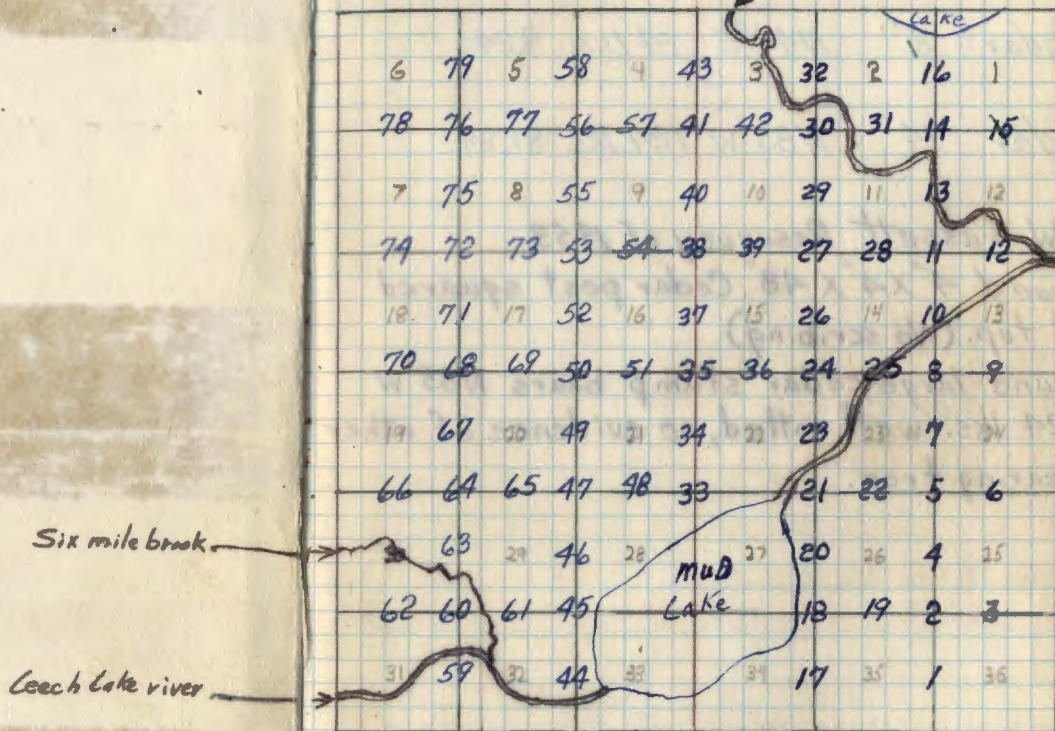 Lake
6 79 5 58 4 43 3 32 2 16 1
78 76 77 56 57 41 42 30 31 14 15
7 75 8 55 9 40 10 29 11 13 12
74 72 73 53 54 38 39 27 28 11 12
18 71 17 52 16 37 15 26 14 10 13
70 68 69 50 51 35 36 24 25 8 9
19 67 20 49 21 34 22 23 23 7 24
66 64 65 47 48 33 21 22 5 6
Six mile brook
63 29 46 28 27 20 26 4 25
MUD
Lake
62 60 61 45 18 19 2 3
Leech Lake river
31 59 32 44 33 34 17 35 1 36